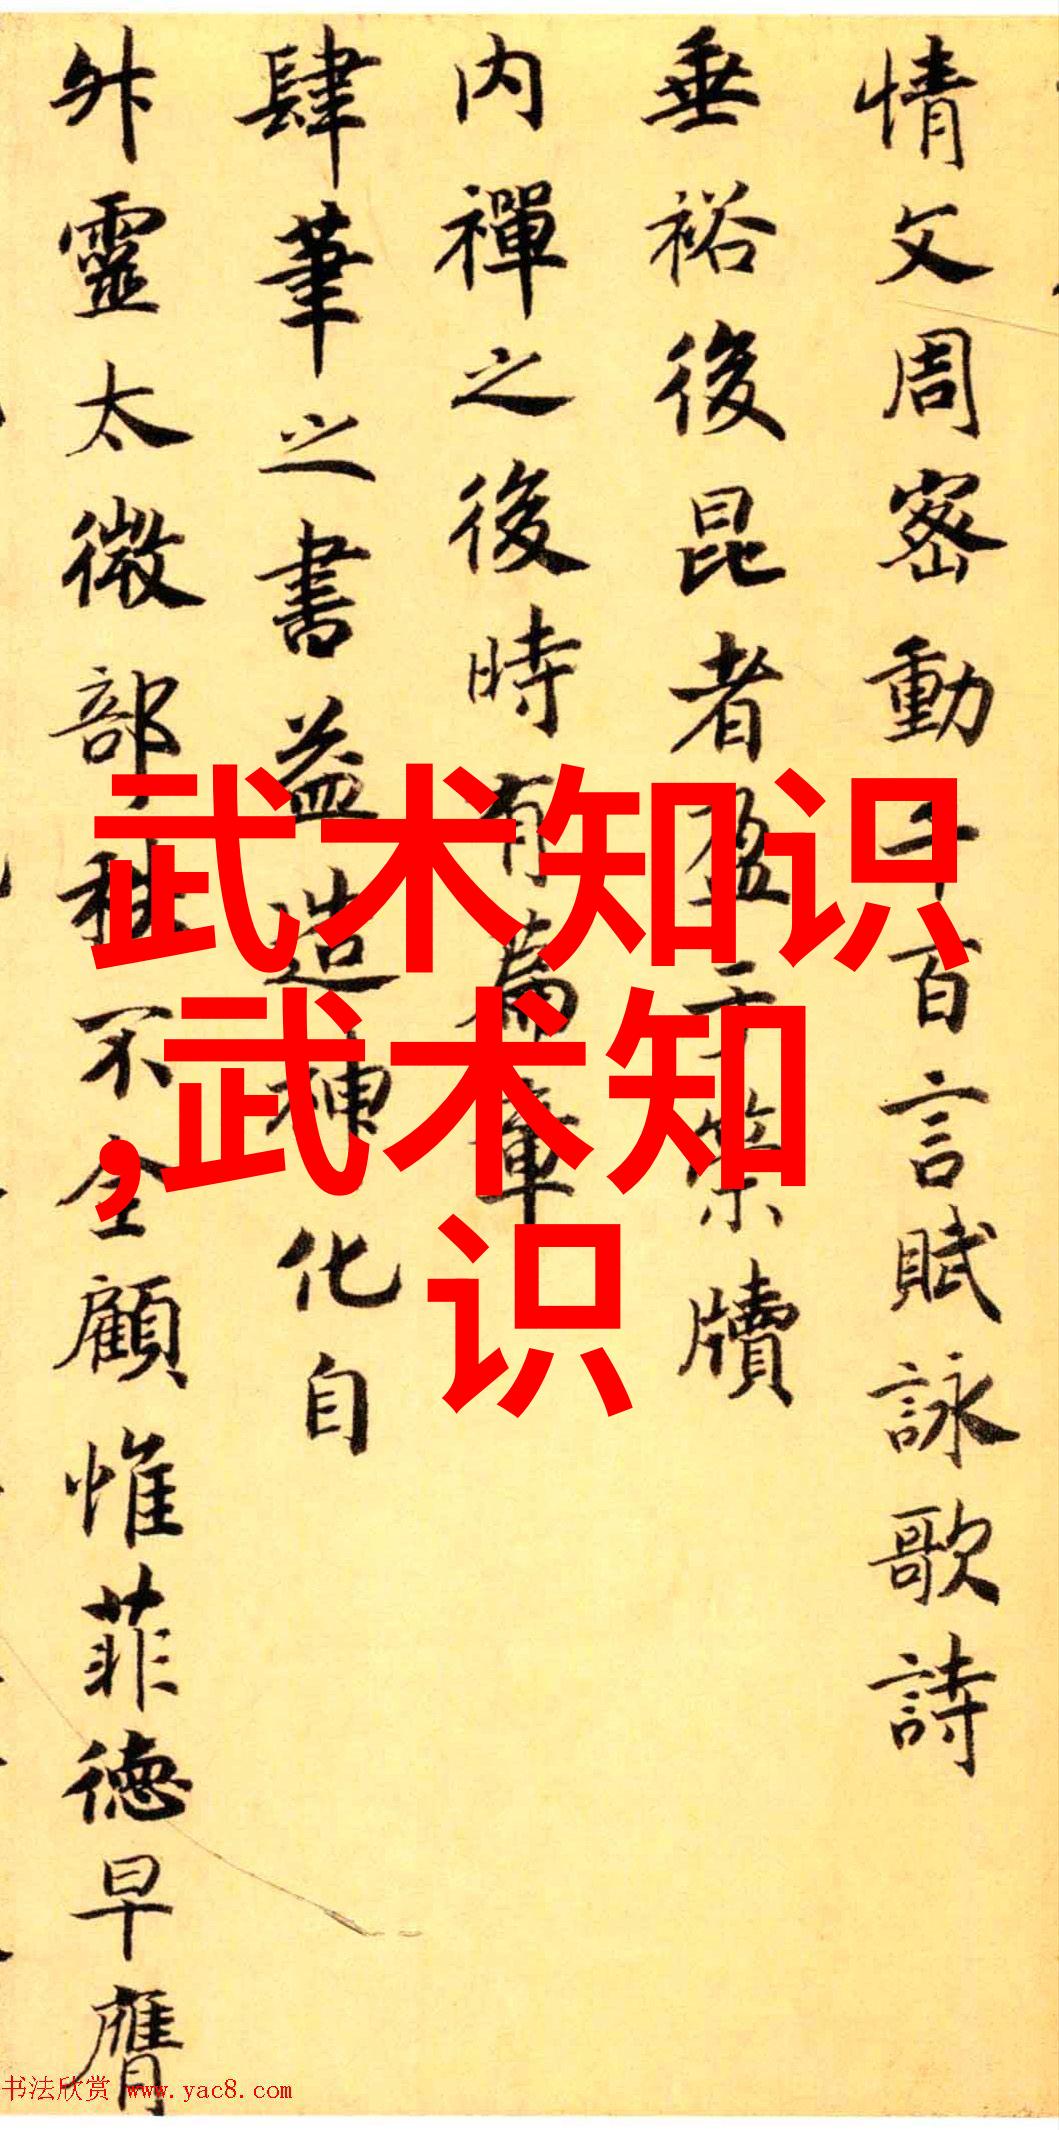 情文周密動千百言賦詠歌詩
垂裕後昆者盈于策牘
内禪之後時有篇章
肆筆之書益造神化自
外靈太微部秩不全顧惟菲德早膺
武术知识
,武术知
识
书法欣赏 www.yac8.com